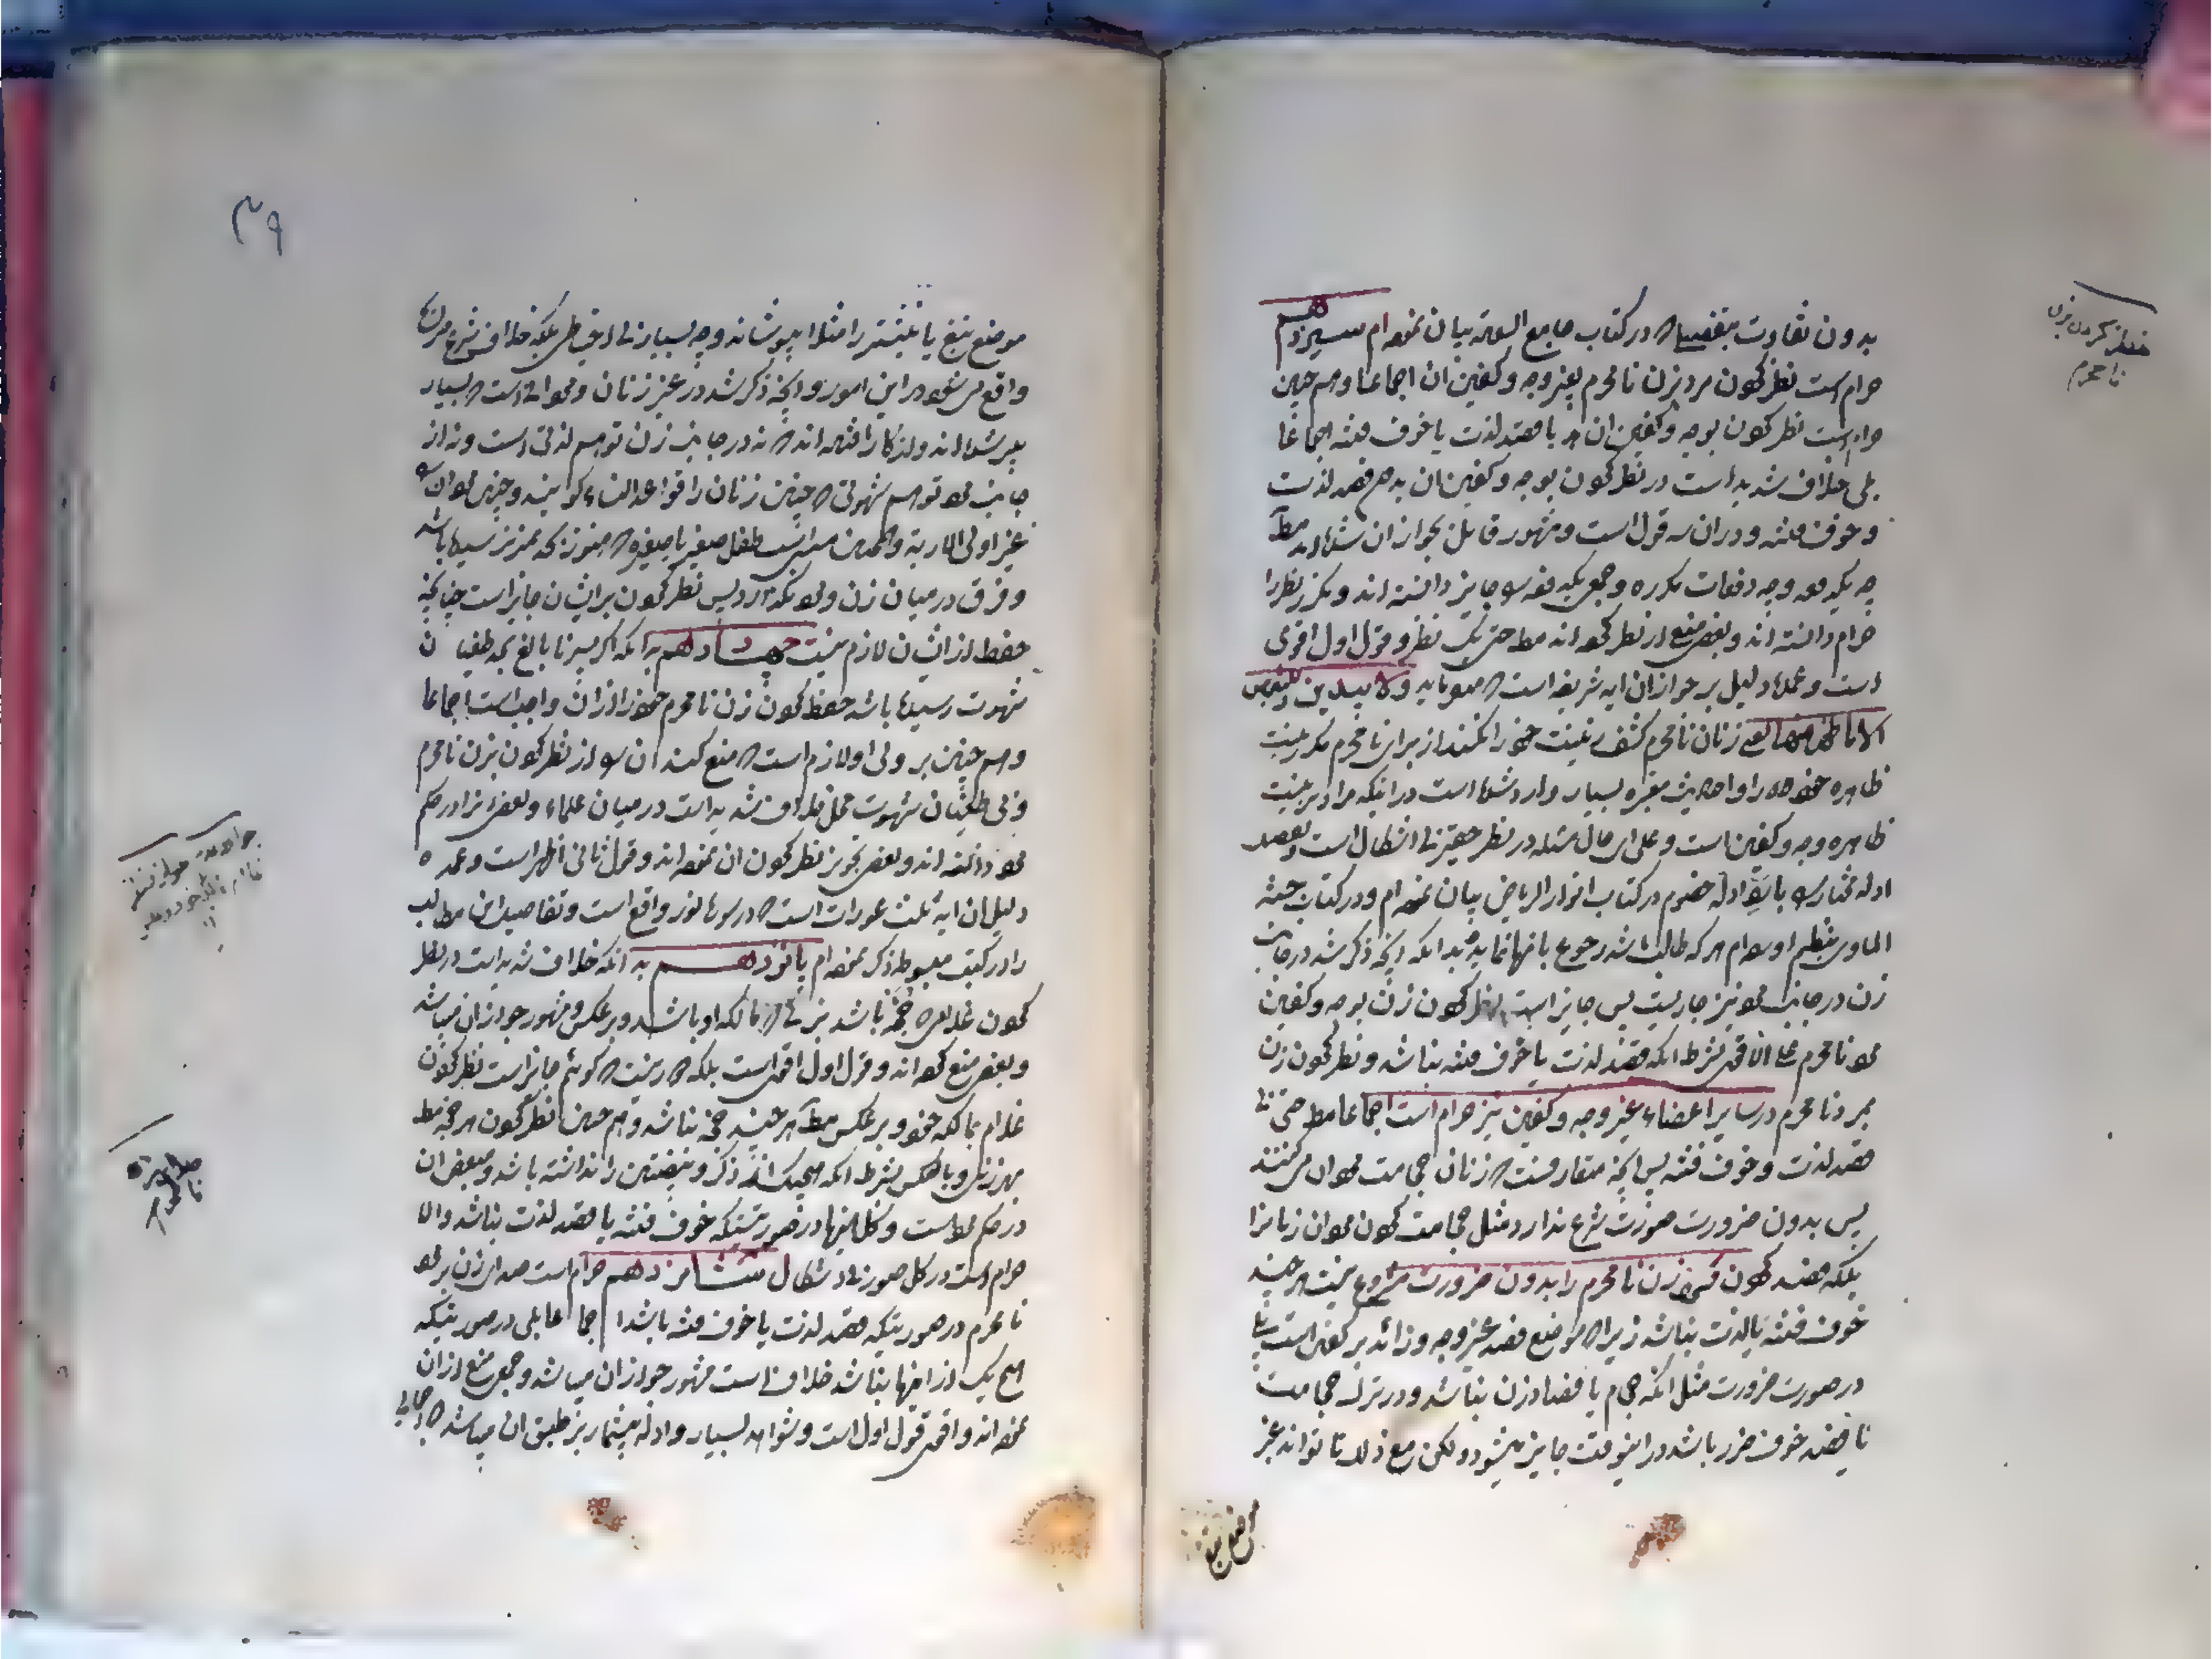 بدون تفاوت بتفصیلی که در کتاب جامع السعة بیان نموده‌ام سیزدهم
حرام است نظر کردن مرد بزن نامحرم بغیر وجه و کفین ان اجماعا و هم چنین
حرام است نظر کردن بوجه و کفین ان با قصد لذت یا خوف فتنه اجماعا
بلی خلاف شدید است در نظر کردن بوجه و کفین ان بدون قصد لذت
و خوف فتنه و در ان سه قول است و مشهور قائل بجواز ان شده‌اند مط
چه یکدفعه و چه دفعات مکرره و جمعی یکدفعه را جایز دانسته اند و مکرر نظر را
حرام دانسته اند و بعضی منع از نظر کرده اند مط حتی یک نظر و قول اول اقوی
است و عمده دلیل بر جواز ان ایه شریفه است که میفرماید ولا یبدین زینتهن
الا ما ظهر منها یعنی زنان نامحرم کشف زینت خود را نکنند از برای نامحرم مگر زینت
ظاهره خود را و احادیث معتبره بسیار وارد شده است در اینکه مراد بزینت
ظاهره وجه و کفین است و علی ای حال مسئله در نظر حقیر بی اشکال است و تفصیل
ادله مختار را با ادله خصوم در کتاب انوار الریاض بیان نموده‌ام و در کتاب
هر که طالب باشد رجوع بانها نماید بدانکه انچه ذکر شد در جانب
زن در جانب مرد نیز جاریست پس جایز است نظر کردن زن بوجه و کفین
مرد نامحرم علی الاقوی بشرط انکه قصد لذت یا خوف فتنه نباشد و نظر کردن زن
بمرد نامحرم در سایر اعضاء غیر وجه و کفین نیز حرام است اجماعا مط حتی بی
قصد لذت و خوف فتنه پس انچه متعارفست که زنان حجامت مردان می‌کنند
پس بدون ضرورت صورت شرع ندارد مثل حجامت کردن مردان زنانرا
بلکه فصد کردن زن نامحرم را بدون ضرورت مشروع نیست هر چند
خوف فتنه یا لذت نباشد زیرا که موضع فصد غیر وجه و زائد بر کفین است بلی
در صورت ضرورت مثل انکه حجام یا فصاد زن نباشد و در ترک حجامت
یا فصد خوف ضرر باشد در اینوقت جایز میشود و لکن مع ذلک تا تواند غیر
موضع تیغ
نظر کردن بزن
نامحرم
۳۹
موضع تیغ یا نیشتر را مثلا بپوشاند و چه بسیار بی احتیاطی بلکه خلاف شرع
واقع می‌شود در این امور و انچه ذکر شد در غیر زنان و مردانی است که بسیار
پیر شده‌اند و از کار افتاده اند که نه در جانب زن توهم لذتی است و نه از
جانب مرد توهم شهوتی که چنین زنان را قواعد النساء گویند و چنین مردان را
غیر اولی الاربة و همچنین است طفل صغیر یا صغیره که هنوز بحد تمیز نرسیده باشد
و فرق در میان زن و مرد نیست پس نظر کردن بر ایشان جایز است چنانچه
حفظ از ایشان لازم نیست چهاردهم بدانکه اگر پسر نابالغ بحد طغیان
شهوت رسیده باشد حفظ کردن زن نامحرم خود را از ان واجب است اجماعا
و هم چنین بر ولی او لازم است که منع کند ان را از نظر کردن بزن نامحرم
و بی طغیان شهوت محل خلاف شدید است در میان علماء و بعضی انرا در حکم
مرد دانسته اند و بعضی تجویز نظر کردن ان نموده‌اند و قول ثانی اظهر است و عمده
دلیل ان ایه ثلث عورات است که در سوره نور واقع است و تفاصیل این مطالب
را در کتب مبسوطه ذکر نموده‌ام پانزدهم بدانکه خلاف شدید است در نظر
کردن غلامی که باشد بزنی که مالکه او باشد و برعکس و مشهور جواز ان میباشد
و بعضی منع کرده‌اند و قول اول اقوی است بلکه جایز است نظر کردن
غلام بمالکه خود و برعکس مط هر چند نباشد و هم چنین نظر کردن
بهر زنی و بالعکس بشرط انکه ذکر و بیضتین را نداشته باشد و بعضی ان
در حکم مرد است و کل اینها در صورتیست که خوف فتنه یا قصد لذت نباشد والا
حرام است در کل صور بی اشکال شانزدهم حرام است صدای زن بر مرد
نامحرم در صورتیکه قصد لذت یا خوف فتنه باشد اجماعا بلی در صورتیکه
هیچ یک از اینها نباشد خلاف است مشهور جواز ان میباشد و جمعی منع از ان
نموده‌اند و اقوی قول اول است و شواهد بسیار و ادله بیشمار بر طبق ان میباشد
صدای زن
نامحرم